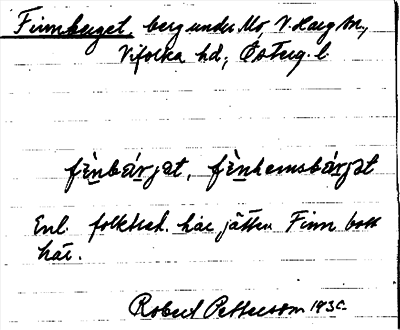 Finnberget, berg under Mo, V. Harg sn.,
Vifolka hd., Östergl. l.
fìnbærjət, fìnhemsbærjət
Enl. folktrad. har jätten Finn bott
här.
Robert Pettersson 193